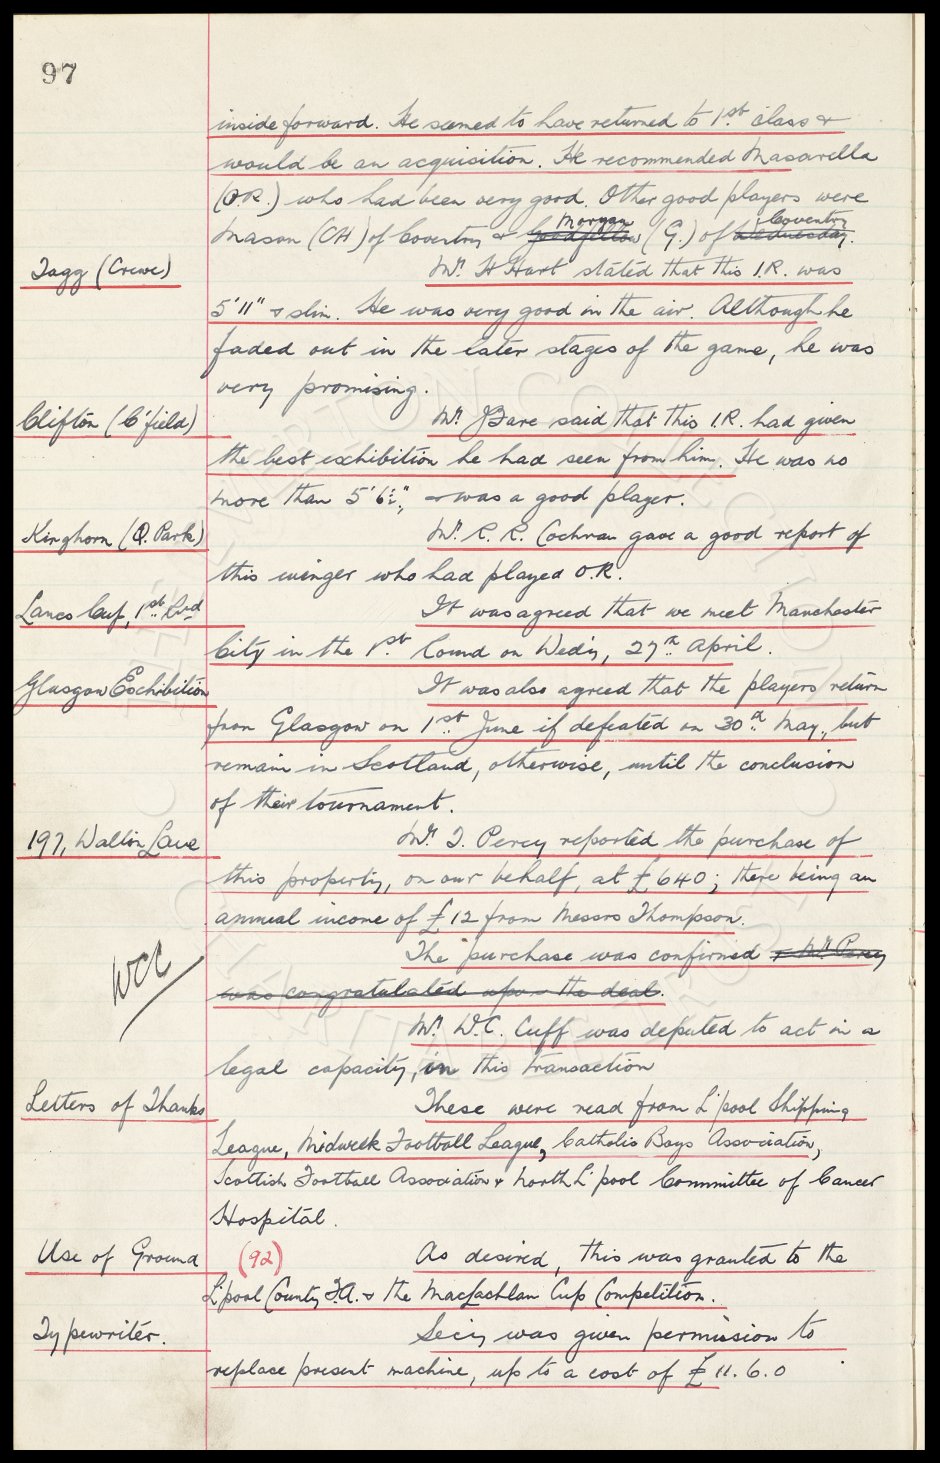 97
inside forward. He seemed to have returned to 1st class &
would be an acquisition. He recommended Masarella
(O.R.) who had been very good. Other good players were
Morgan Coventry
Mason (CH) of Coventry & Goodfellow (G.) of Wednesday.
Tagg (Crewe) Mr. H Hart stated that this I.R. was
5'11" & slim. He was very good in the air. Although he
faded out in the later stages of the game, he was
very promising.
Clifton (C'field) Mr. J Bare said that this I.R. had given
the best exhibition he had seen from him. He was no
more than 5'6½", & was a good player.
Kinghorn (Q. Park) Mr. R. R. Cochran gave a good report of
this winger who had played O.R.
Lancs Cup, 1st Rnd It was agreed that we meet Manchester
City in the 1st Round on Wed'y, 27th April.
Glasgow Exchibition It was also agreed that the players return
from Glasgow on 1st June if defeated on 30th May, but
remain in Scotland, otherwise, until the conclusion
of their tournament.
197, Walton Lane Mr. T. Percy reported the purchase of
this property, on our behalf, at £640; there being an
annual income of £12 from Messrs Thompson.
The purchase was confirmed & Mr. Percy
WCC
was congratulated upon the deal.
Mr. W.C. Cuff was deputed to act in a
legal capacity, in this transaction
Letters of Thanks These were read from L'pool Shipping
League, Midweek Football League, Catholic Boys Association,
Scottish Football Association & North L'pool Committee of Cancer
Hospital.
Use of Ground (92) As desired, this was granted to the
L'pool County F.A. & the MacLachlan Cup Competition.
Typewriter. Sec'y was given permission to
replace present machine, up to a cost of £11.6.0